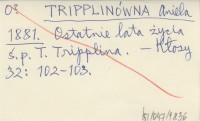 03 TRIPPLINÓWNA Aniela
1881. Ostatnie lata życia
ś.p. T. Tripplina. – Kłosy
32: 102–103.